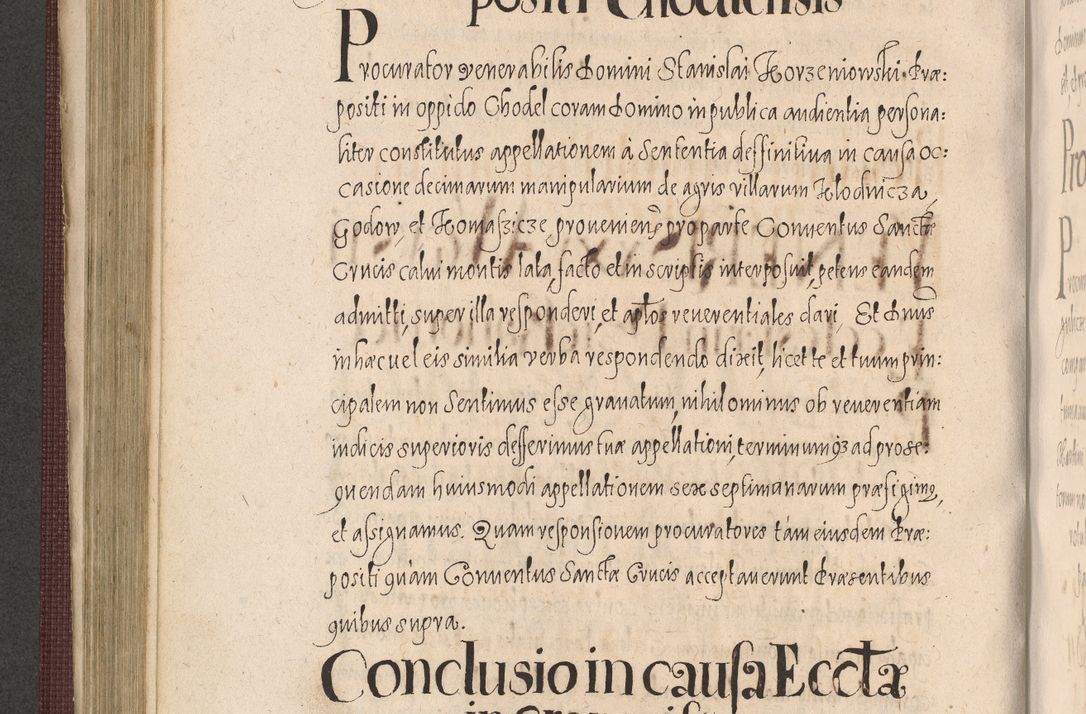 positi Chodlensis
Procurator venerabilis domini Stanislai Korzeniowski Præ:
positi in oppido Chodel coram domino in publica audientia persona:
liter constitutus appellationem à sententia deffinitiua in causa oc:
casione decimarum manipularium de agris villarum Klodnicza,
Godow, et Komaszicze proveniens pro parte Conuentus Sanctæ
Crucis calui montis lata, facto et in scriptis interposuit, petens eandem
admitti, super illa responderi, et aptos reuerentiales dari. Et dnus
in hæc uel eis similia verba respondendo dixit, licet te et tuum prin:
cipalem non sentimus esse grauatum, nihilominus ob reuerentiam
iudicis superioris defferimus tuæ appellationi, terminumq3 ad prose:
quendam huiusmodi appellationem sex septimanarum præfigimq,
et assignamus. Quam responsionem procuratores tam eiusdem Præ:
positi quam Conuentus Sanctæ Crucis acceptauerunt Præsentibus
quibus supra.
Conclusio in causa Ecctæ